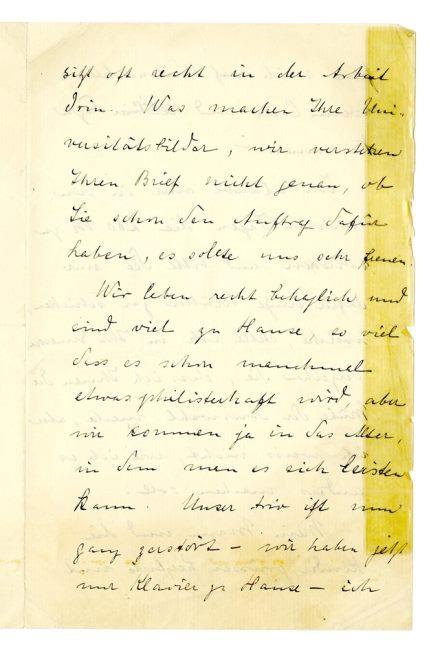 sitzt oft recht in der Arbeit
drin. Was machen Ihre Uni-
versitätsbilder, wir verstehen
Ihren Brief nicht genau, ob
Sie schon den Auftrag dafür
haben, es sollte uns sehr freuen.
Wir leben recht behaglich und
sind viel zu Hause so viel
dass es schon manchmal
etwas philisterhaft wird, aber
wir kommen ja in das Alter,
in dem man es sich leisten
kann. Unser trio ist nun
ganz zerstört – wir haben jetzt
nur Klavier zu Hause – ich